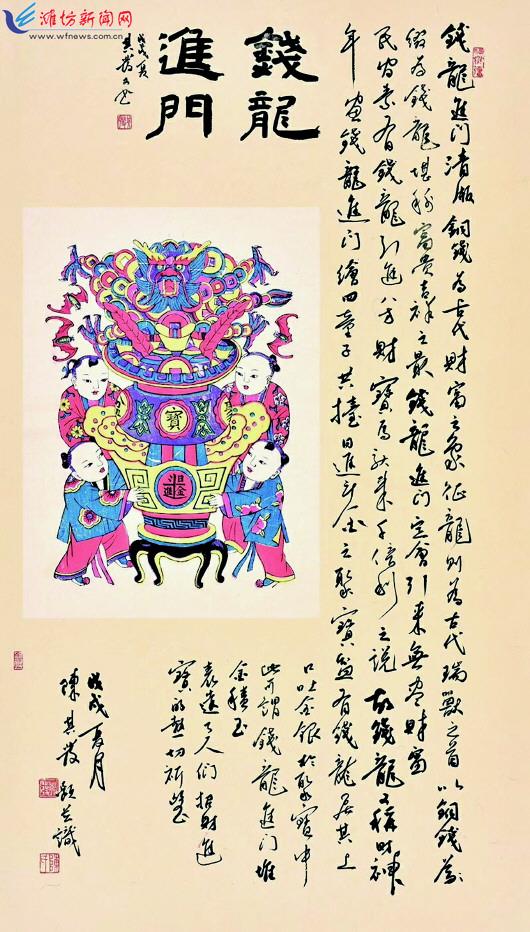 潍坊新闻网
www.wfnews.com.cn
錢龍
進門
戊戌夏
其發書
錢龍進门清版銅錢為古代財富之象征龍則為古代瑞獸之首以銅錢為
綴為錢龍堪称富贵吉祥之最錢龍進门定會引来無盡財富
民间素有錢龍引進八方財寳馬馱来千倍利之說故錢龍又稱財神
年画錢龍進门繪四童子共擡日進斗金之聚寳盆有錢龍居其上
口吐金銀於聚寳中
此所謂錢龍進门堆
金積玉
表達了人们招財進
寳的熱切祈望
戊戌夏月
陳其發題並識
寳
日進
斗金